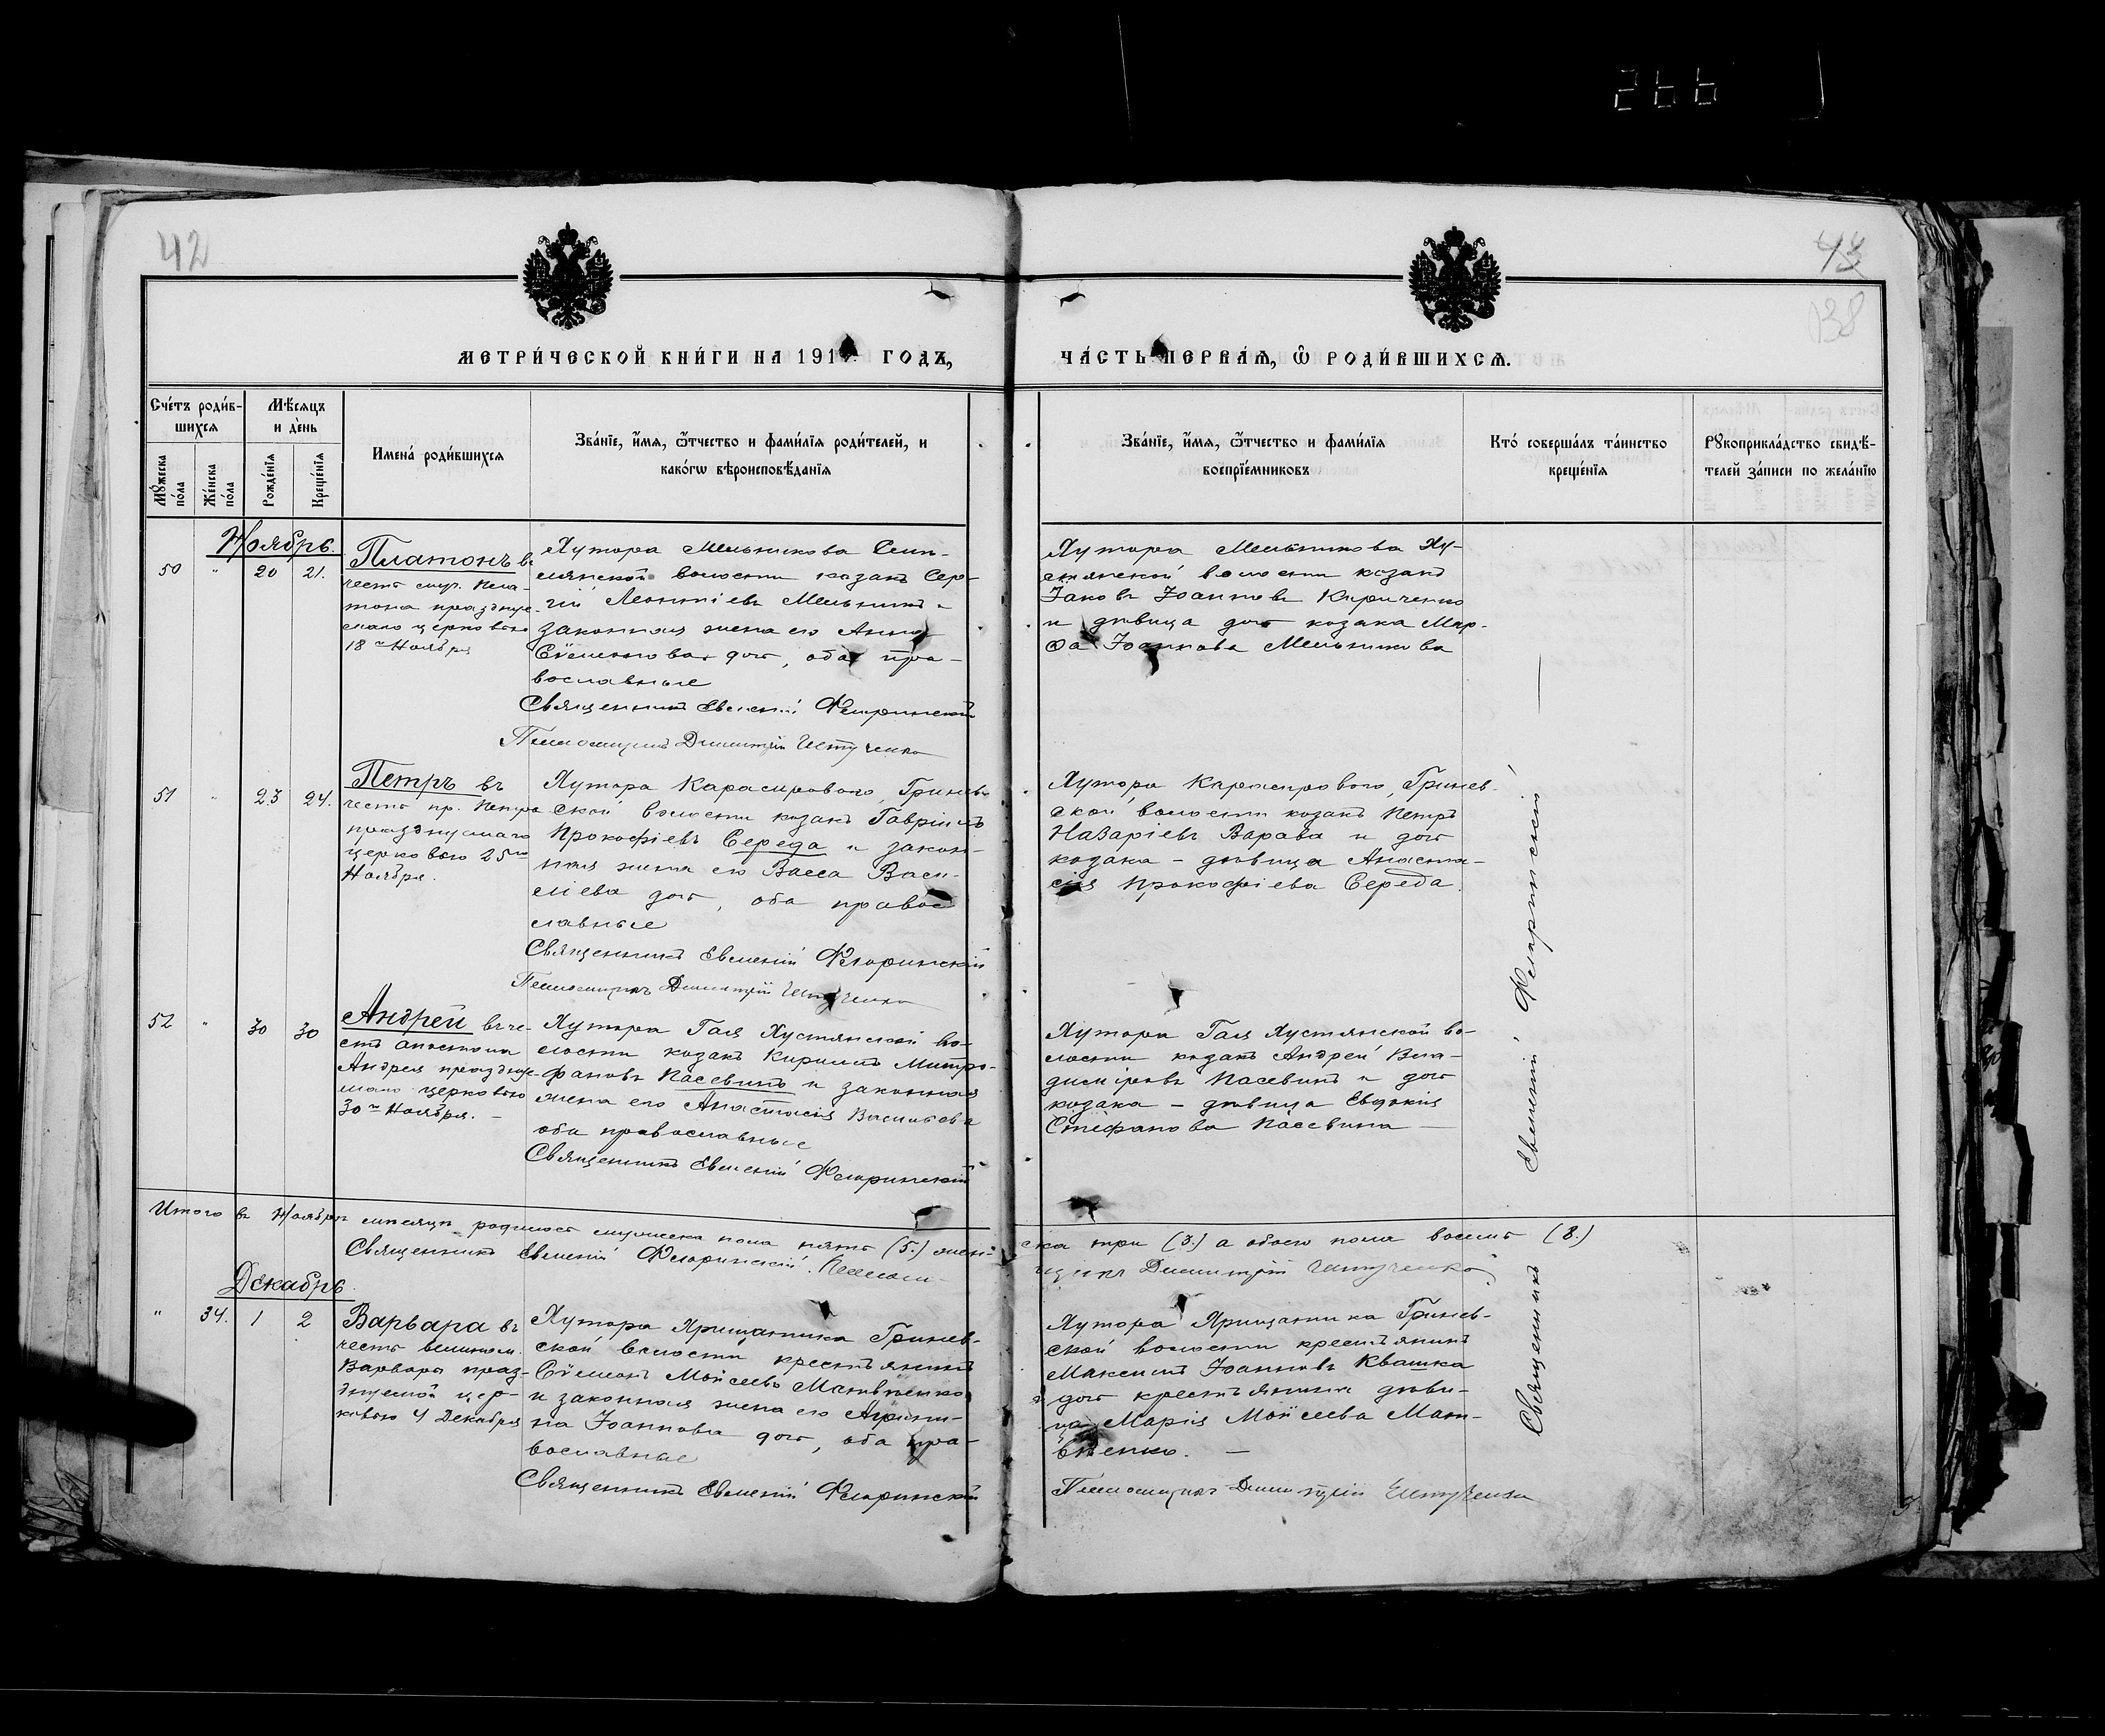 266
42
43
138
МЕТРИ́ЧЕСКОЙ КНИ́ГИ НА 191 ГОДЪ,
ЧА́СТЬ ПЕ́РВАѦ, Ѡ РОДИ́ВШИХСѦ.
Сче́тъ роди́в-
шихся
Мѣ́сяцъ
и де́нь
Мꙋ́жеска по́ла
Же́нска по́ла
Рожде́нїя
Креще́нїя
Имена̀ роди́вшихся
Зва́нїе, и́мя, ѻ́тчество и фами́лїя роди́телей, и
како́гѡ вѣроисповѣ́данїя
Зва́нїе, и́мя, ѻ́тчество и фами́лїя
воспрїе́мниковъ
Кто̀ соверша́лъ та́инство
креще́нїя
Рꙋкоприкла́дство свидѣ́-
телей за́писи по жела́нїю
Ноябрь.
50 " 20 21.
Платонъ въ
честь муч. Пла-
тона праздnуе-
маго церковью
18 Ноября
Хутора Мельникова
волости козакъ Сер-
гій Леонтіевъ Мельникъ и
законная жена его Анна
Сѵмеонова доч, оба пра-
вославные
Священникъ Евменій Флоринскій
Псаломщикъ Димитрій
Хутора Мельникова Ху-
стянской волости козакъ
Іаковъ Іоанновъ Кириченко
и дѣвица доч козака Мар-
ѳа Іоаннова Мельникова
51 " 23 24.
Петръ въ
честь пр. Петра
празднуемаго
церковью 25го
Ноября.
Хутора Карасироваго, Гриньв-
ской волости козакъ Гавріилъ
Прокофіевъ Середа и закон-
ная жена его Васса Васи-
ліева доч, оба право-
славные
Священникъ Евменій Флоринскій
Псаломщикъ Димитрій
Хутора Карасироваго, Гриньв-
ской волости козакъ Петръ
Назаріевъ Варава и доч
козака – дѣвица Анаста-
сія Прокофіева Середа.
52 " 30 30
Андрей въ че-
сть апостола
Андрея празднуе-
маго церковью
30го Ноября. –
Хутора Гая Хустянской во-
лости козакъ Кириллъ Митро-
фановъ Пасевинъ и законная
жена его Анастасія Васильева
оба православные
Священникъ Евменій Флоринскій
Хутора Гая Хустянской во-
лости козакъ Андрей Вла-
диміровъ Пасевинъ и доч
козака – дѣвица Евдокія
Стефанова Пасевина —
Итого въ Ноябрѣ мѣсяцѣ родилось мужеска пола пять (5.) жен-
ска три (3.) а обоего пола восемь (8.)
Священникъ Евменій Флоринскій. Псалом-
щикъ Димитрій
Декабрь.
" 34. 1 2
Варвара въ
честь великом.
Варвары праз-
днуемой цер-
ковью 4 Декабря
Хутора Ярищанника Гриньв-
ской волости крестьянинъ
Сѵмеонъ Мойсеевъ Матвѣенко
и законная жена его
Іоаннова доч, оба пра-
вославные
Священникъ Евменій Флоринскій
Хутора Ярищанника Гриньв-
ской волости крестьянинъ
Максимъ Іоанновъ Квашка
доч крестьянина дѣви-
ца Марія Мойсеева Мат-
вѣенко. —
Псаломщикъ Димитрій
Священникъ Евменій Флоринскій —